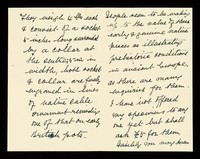 They weigh 2 lbs each
& consist of a socket
5 inches long surround-
ed by a collar at
the centre 5 in in
width, both socket
& collar are finely
engraved in lines
of native cable
ornament reminding
one of that on early
British pots.
People seem to be waking
up to the value of these
early & genuine native
pieces as illustrating
prehistoric conditions
in ancient Europe,
as there are many
inquiries for them.
I have not offered
my specimens to any
one yet but shall
ask £5 for them